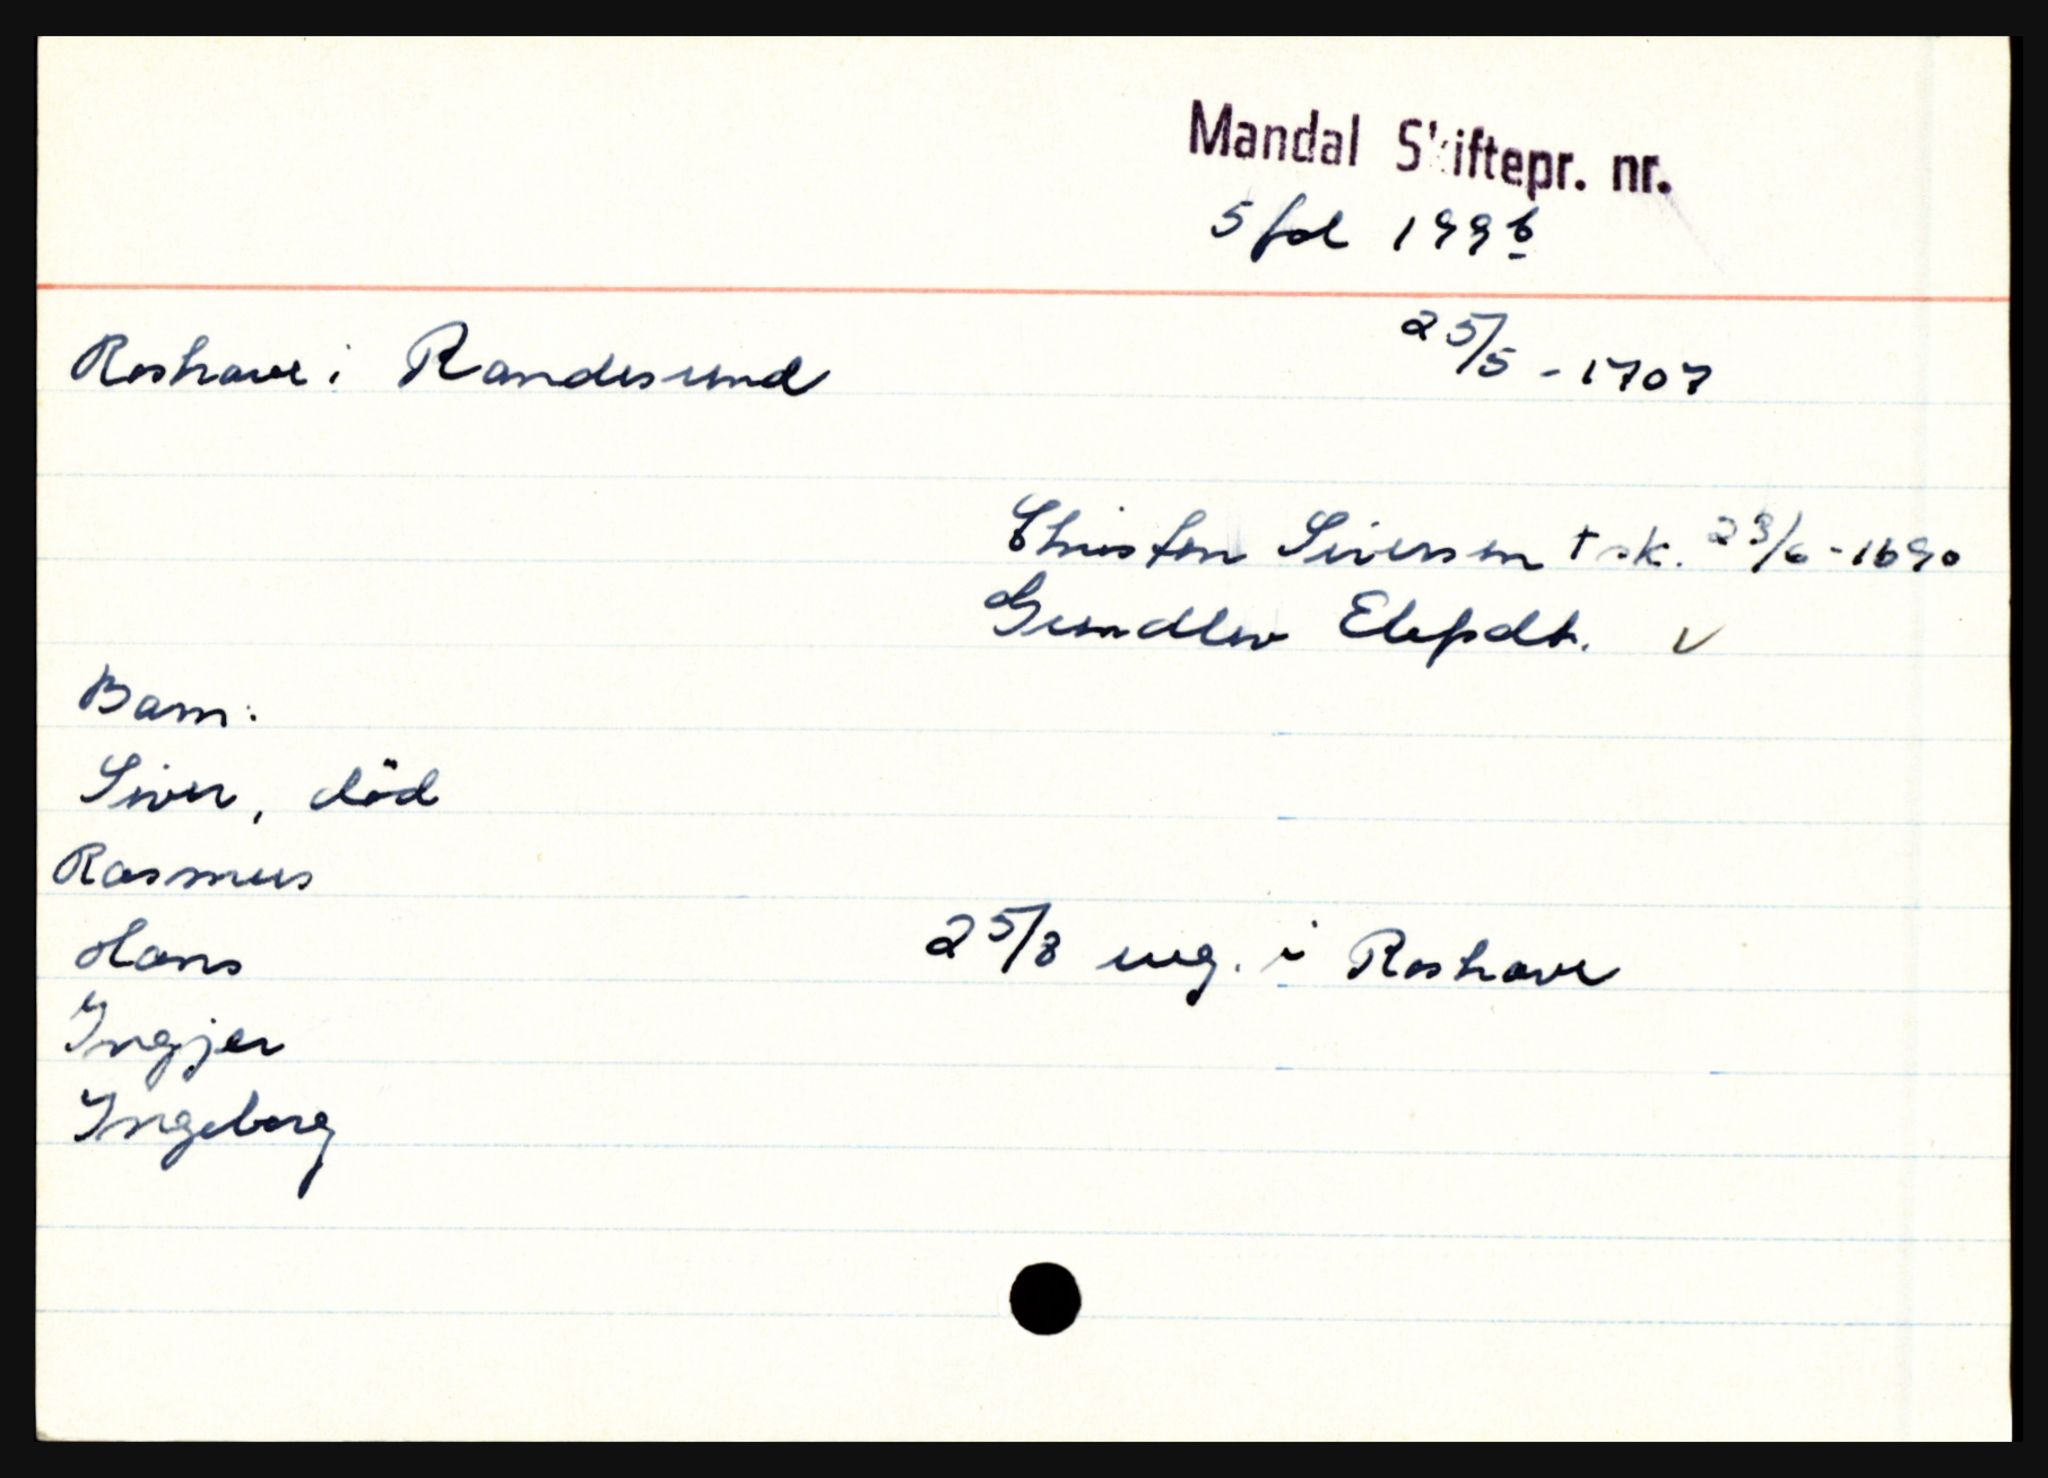 Mandal Skiftepr. nr.
5 fol 199b
Roshave i Randesund 25/5 - 1707
Christen Siversen † sk. 23/6 - 1690
Gundlev Elefsdt. v
Barn:
Siver, död
Rasmus
Hans 25/8 ueg. i Roshave
Ingjer
Ingeborg